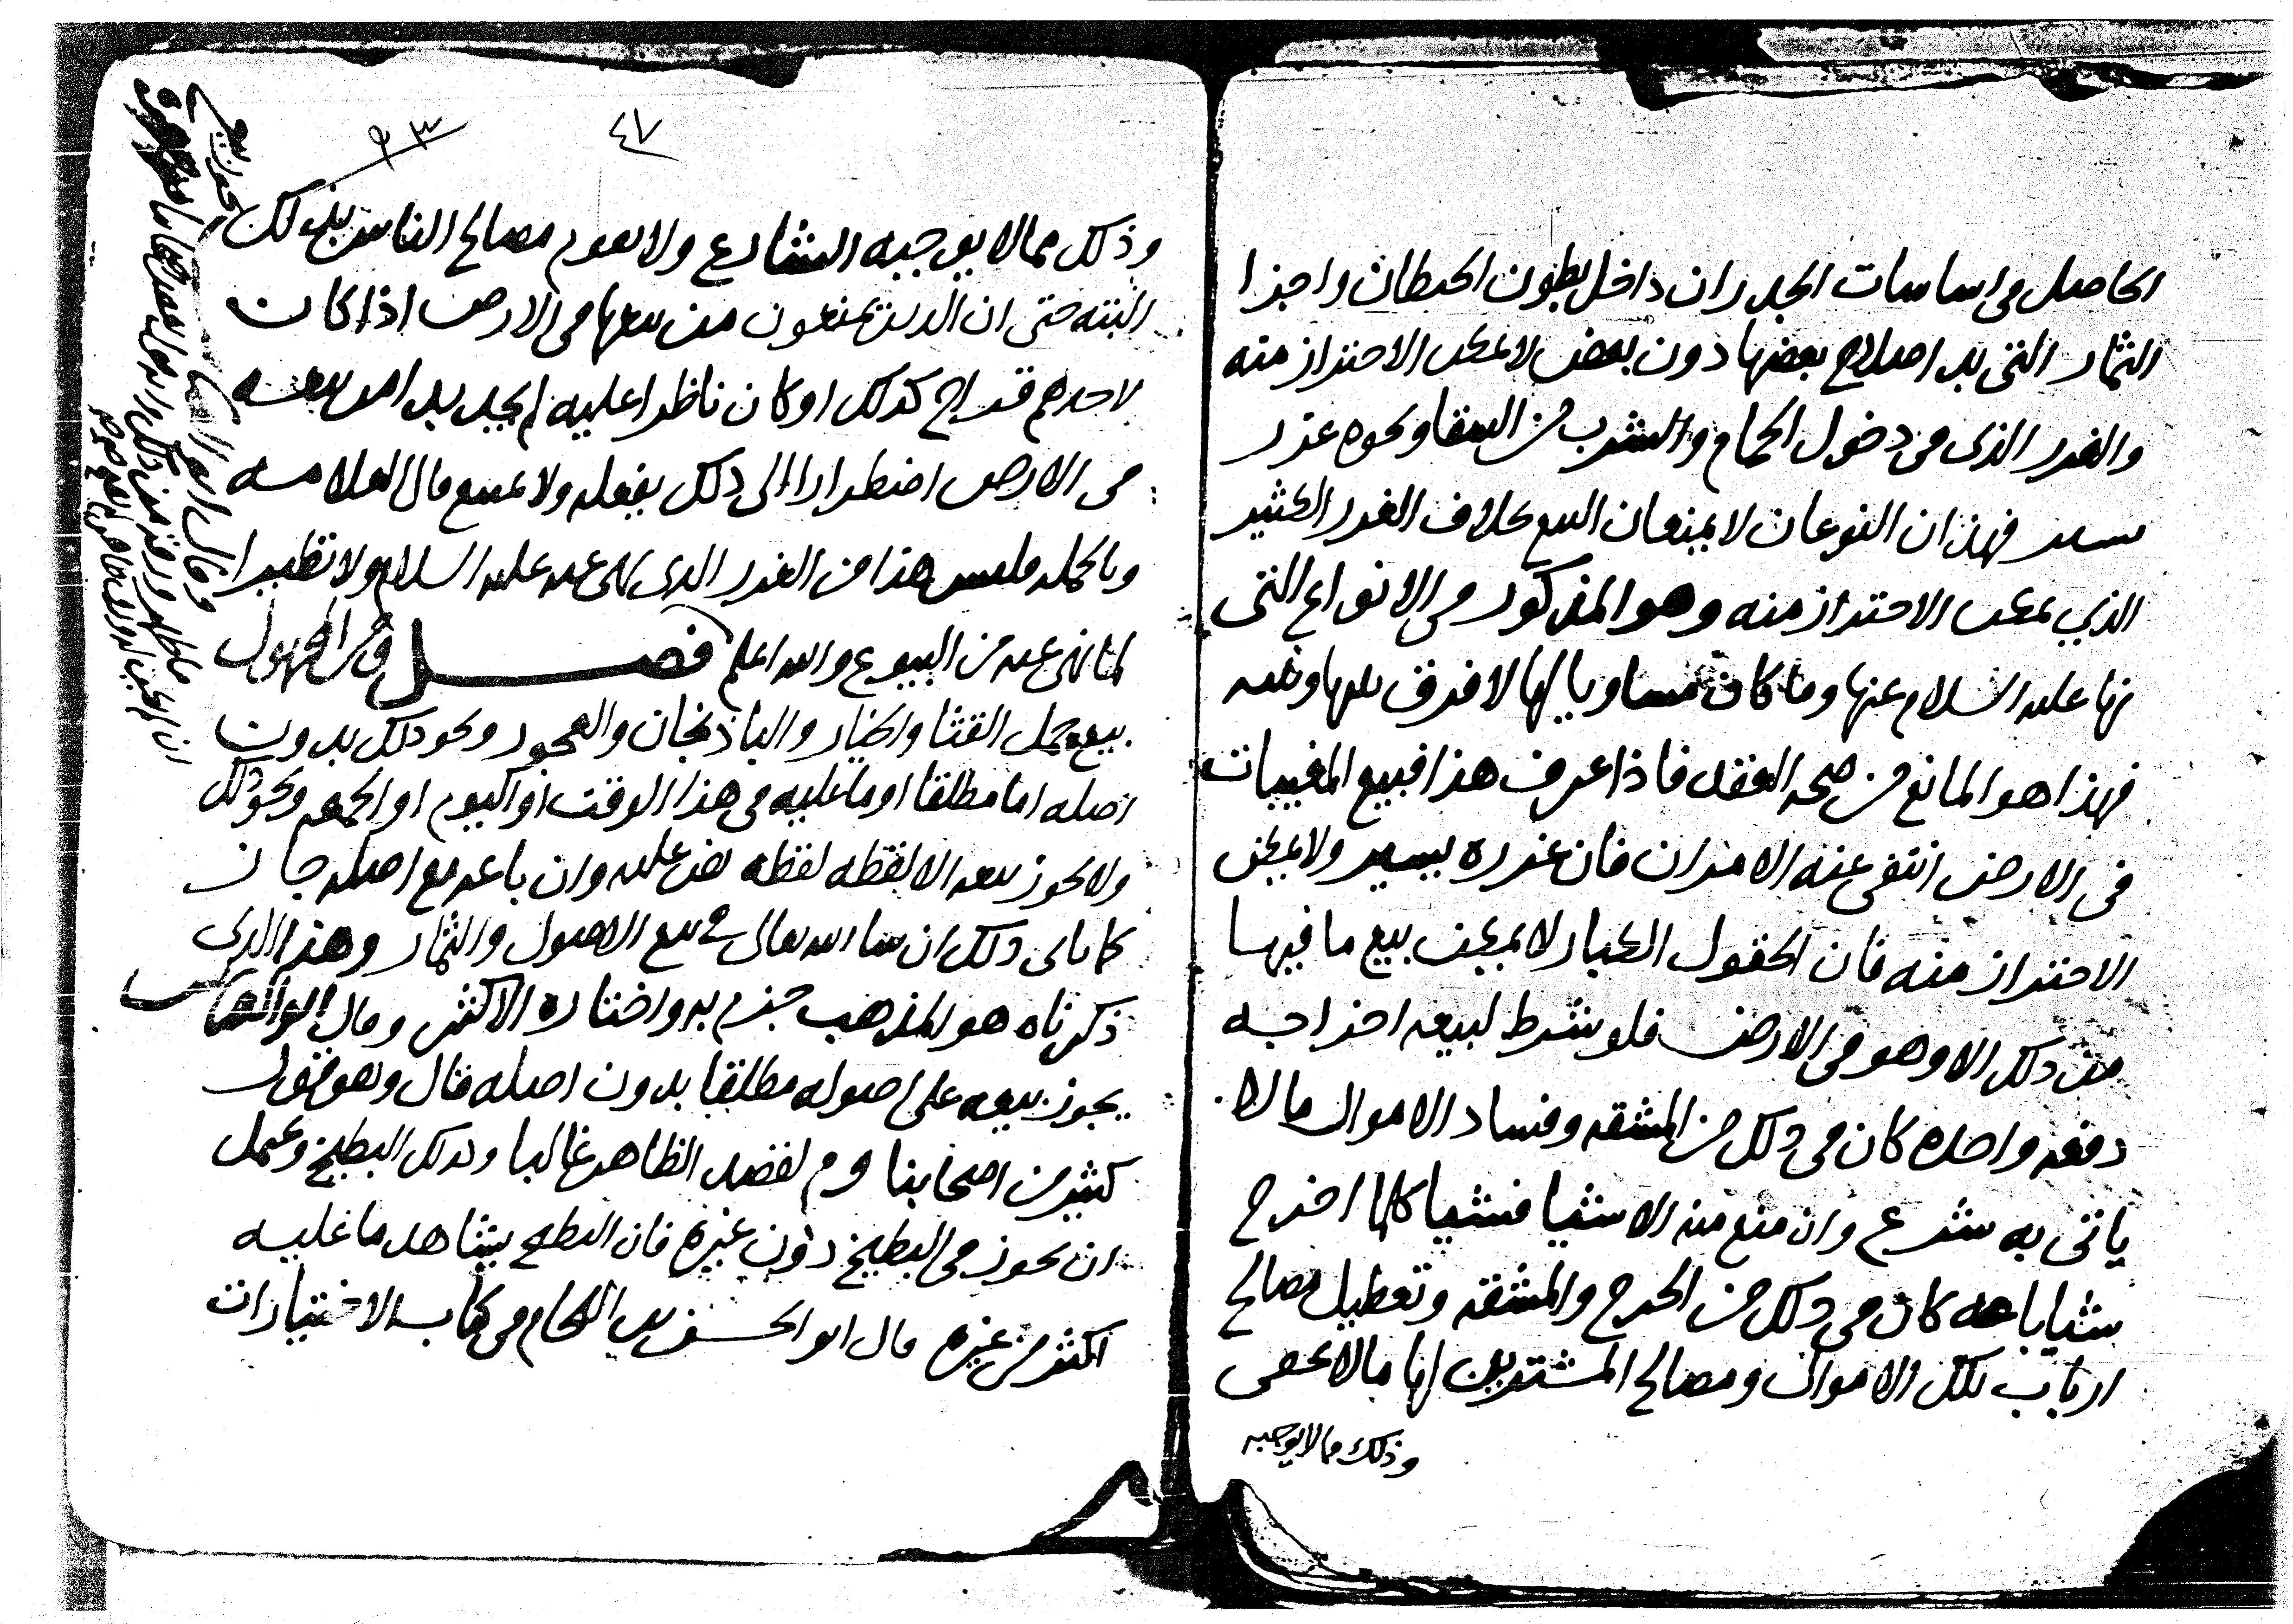 الحاصل في اساسات الجدران داخل بطون الحيطان واجزا
الثمار التي بدا صلاح بعضها دون بعض لا يمكن الاحتراز منه
والغرر الذي في دخول الحمام والشرب من السقا ونحوه غرر
يسير فهذان النوعان لا يمنعان البيع بخلاف الغرر الكثير
الذي يمكن الاحتراز منه وهو المذكور في الانواع التي
نها عليه السلام عنها وما كان مساويا لها لا فرق بينها وبينه
فهذا هو المانع من صحه العقد فاذا عرف هذا فبيع المغيبات
في الارض انتفى عنه الامران فان غرره يسير ولا يمكن
الاحتراز منه فان الحقول الكبار لا يمكن بيع ما فيها
من ذلك الا وهو في الارض فلو شرط لبيعه اخراجه
دفعه واحده كان في ذلك من المشقه وفساد الاموال ما لا
ياتي به شرع وان منع منه الا شيا فشيا كلما اخرج
شيا باعه كان في ذلك من الحرج والمشقه وتعطيل مصالح
ارباب تلك الاموال ومصالح المشترين لها ما لا يخفى
وذلك مما لا يوجبه
٤٧
٩٣
وذلك مما لا يوجبه الشارع ولا تقوم مصالح الناس بذلك
البته حتى ان الذين يمنعون من بيعها في الارض اذا كان
لاحدهم قراح كذلك او كان ناظرا عليه لم يجد بدا من بيعه
في الارض اضطرارا الى ذلك بفعله ولا يمنع قال العلامه
وبالجمله فليس هذا من الغرر الذي نهى عنه عليه السلام ولا نظيرا
لما نهى عنه من البيوع والله اعلم فصل ومن المجهول
بيع حمل القثا والخيار والباذنجان والعجور ونحو ذلك بدون
اصله اما مطلقا او ما عليه في هذا الوقت او اليوم او الجمعه ونحو ذلك
ولا يجوز بيعه الا لقطه لقطه نص عليه وان باعه مع اصله جاز
كما ياتي ذلك ان شا الله تعالى في بيع الاصول والثمار وهذا الذي
ذكرناه هو المذهب جزم به واختاره الاكثر وقال ابو العباس
يجوز بيعه على اصوله مطلقا بدون اصله قال وهو قول
كثير من اصحابنا لقصد الظاهر غالبا وكذلك البطيخ ويحمل
ان يجوز في البطيخ دون غيره فان البطيخ يشاهد ما عليه
اكثر من غيره قال ابو الحسن بن اللحام في كتاب الاختيارات